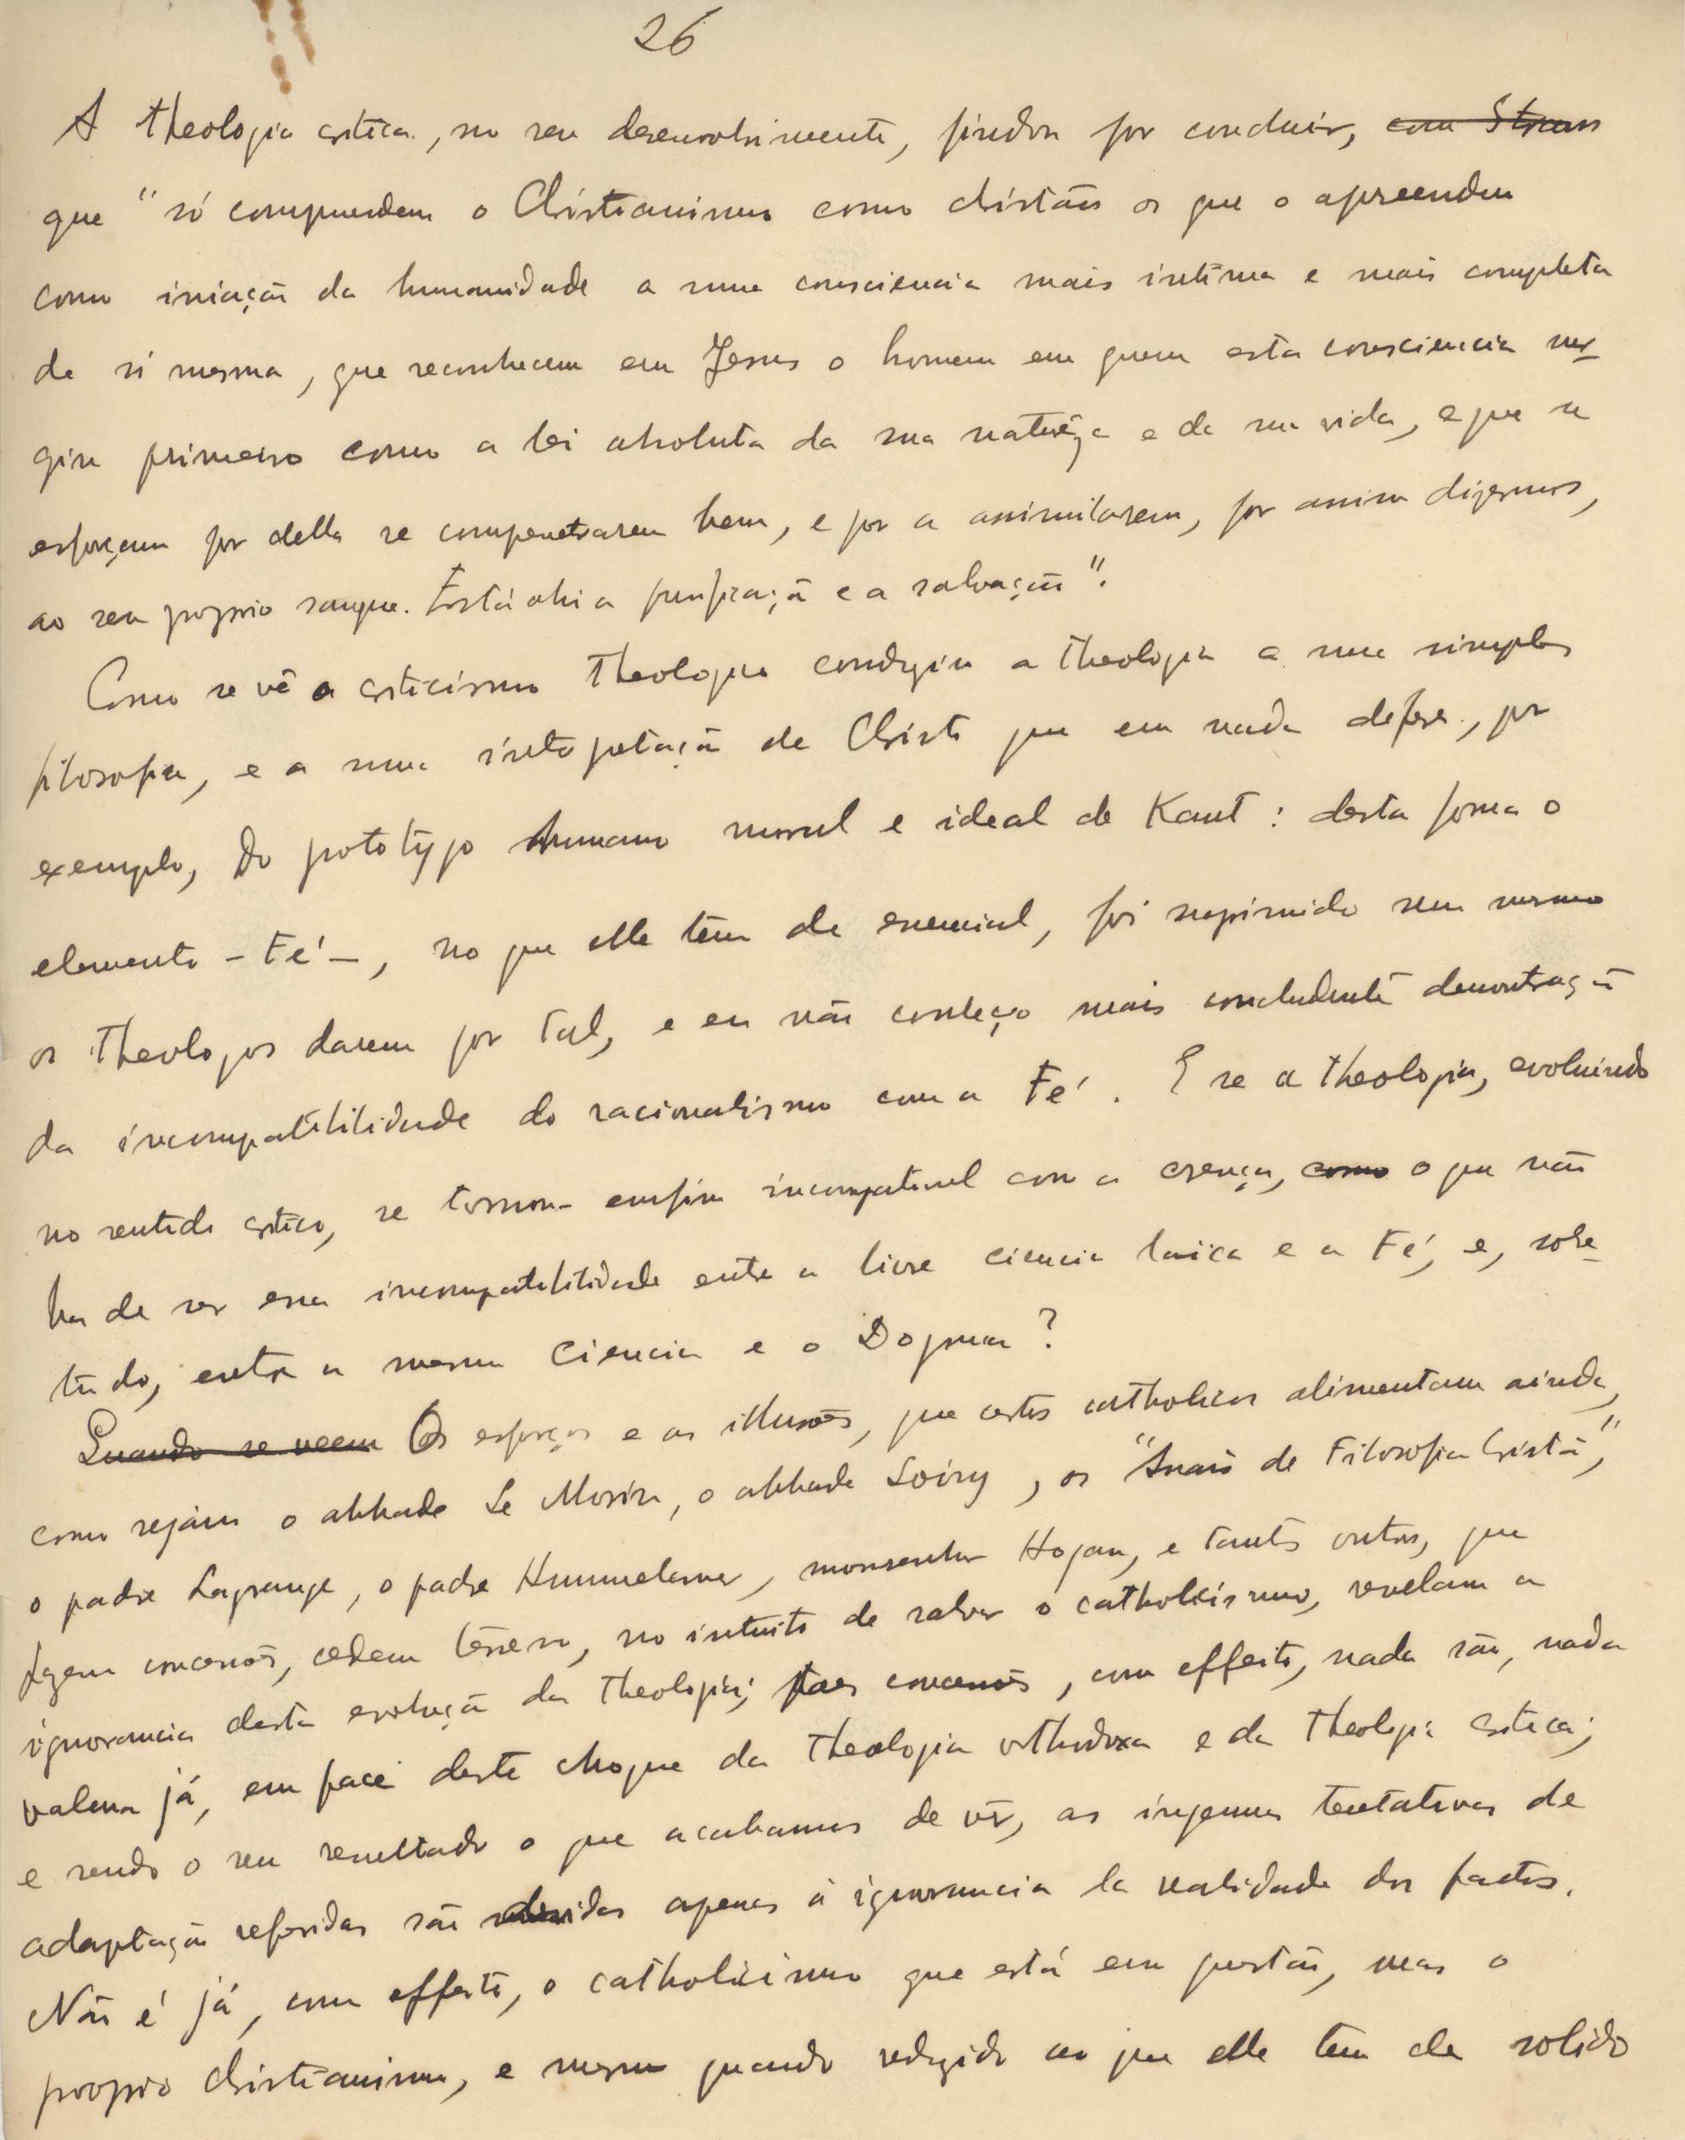 26
A theologia critica, no seu desenvolvimento, findou por concluir, com Strauss
que "só comprendem o Christianismo como christãos os que o apreendem
como iniciação da humanidade a uma consciencia mais intima e mais completa
de si mesma, que reconhecem em Jesus o homem em quem esta consciencia sur-
giu primeiro como a lei absoluta da sua natureza e da sua vida, e que se
esforçam por della se compenetrarem bem, e por a assimilarem, por assim dizermos,
ao seu proprio sangue. Está ahi a purificação e a salvação".
Como se vê o criticismo theologico conduziu a theologia a uma simples
filosofia, e a uma interpretação de Christo que em nada difere, por
exemplo, do prototypo humano moral e ideal de Kant: desta forma o
elemento - Fé -, no que elle tem de essencial, foi suprimido sem mesmo
os theologos darem por tal, e eu não conheço mais concludente demonstração
da incompatibilidade do racionalismo com a Fé. E se a theologia, evoluindo
no sentido critico, se tornou emfim incompativel com a crença, como o que não
ha de ser essa incompatibilidade entre a livre ciencia laica e a Fé, e, sobre-
tudo, entre a mesma ciencia e o Dogma?
Quando se veem Os esforços e as illusões, que certos catholicos alimentam ainda,
como sejam o abbade Le Morin, o abbade Loisy, os "Anais de Filosofia Cristã",
o padre Lagrange, o padre Hummelauer, monsenhor Hogan, e tantos outros, que
fazem concessões, cedem terreno, no intuito de salvar o catholicismo, revelam a
ignorancia desta evolução da theologia; taes concessões, com effeito, nada são, nada
valem já, em face deste choque da theologia orthodoxa e da theologia critica;
e sendo o seu resultado o que acabamos de vêr, as ingenuas tentativas de
adaptação referidas são devidas apenas á ignorancia da realidade dos factos.
Não é já, com effeito, o catholicismo que está em questão, mas o
proprio christianismo, e mesmo quando reduzido ao que elle tem de solido